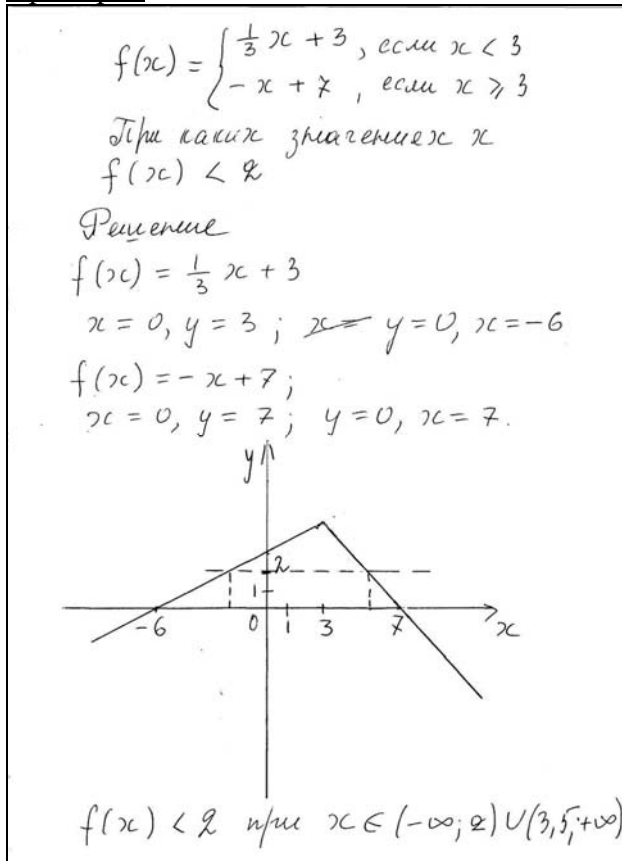 f(x) = { 1/3 x + 3, если x < 3
- x + 7, если x ⩾ 3
При каких значениях x
f(x) < 2
Решение
f(x) = 1/3 x + 3
x = 0, y = 3 ; x= y = 0, x = -6
f(x) = - x + 7 ;
x = 0, y = 7 ; y = 0, x = 7.
y
2
1
-6 0 1 3 7 x
f(x) < 2 при x ∈ (-∞; 2) ∪ (3,5; +∞)